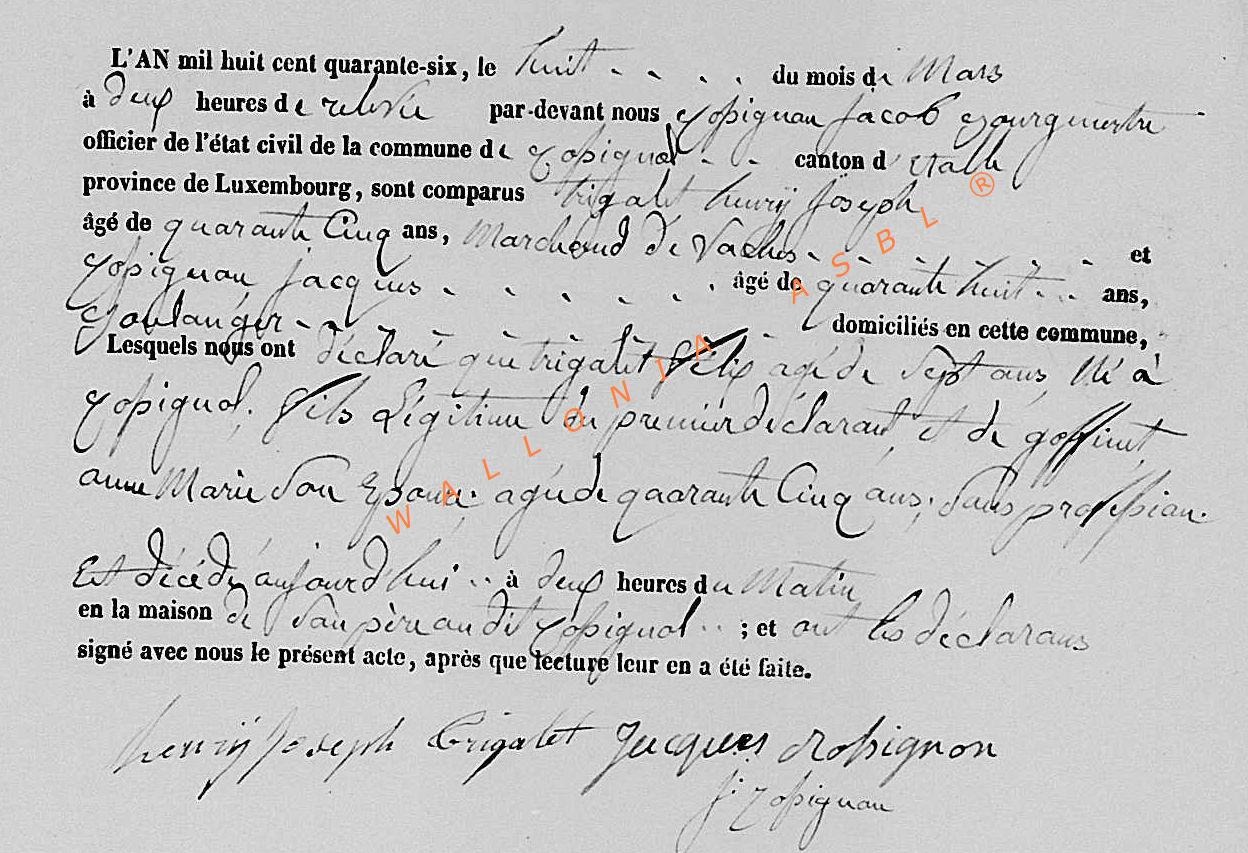 L'AN mil huit cent quarante-six, le huit - - - - du mois de Mars
à deux heures de relevée par-devant nous Rossignon Jacob Bourgmestre
officier de l'état civil de la commune de Rossignol - - canton d'Etalle
province de Luxembourg, sont comparus trigalet henrÿ Joseph
âgé de quarante Cinq ans, Marchand de Vaches - - - - - - et
Rossignon jacques - - - - - - âgé de quarante huit - - ans,
Boulanger - - - - - - domiciliés en cette commune,
Lesquels nous ont déclaré que trigalet félix agé de Sept ans Né à
Rossignol, fils Légitime du premier déclarant et de goffinet
anne Marie Son Epouse agée de quarante Cinq ans, Sans profession.
Est décédé aujourd'hui - - à deux heures du Matin
en la maison de Son père au dit Rossignol - - ; et ont les déclarans
signé avec nous le présent acte, après que lecture leur en a été faite.
henrÿ Joseph trigalet Jacques Rossignon
J. Rossignon
WALLONIA ASBL ®